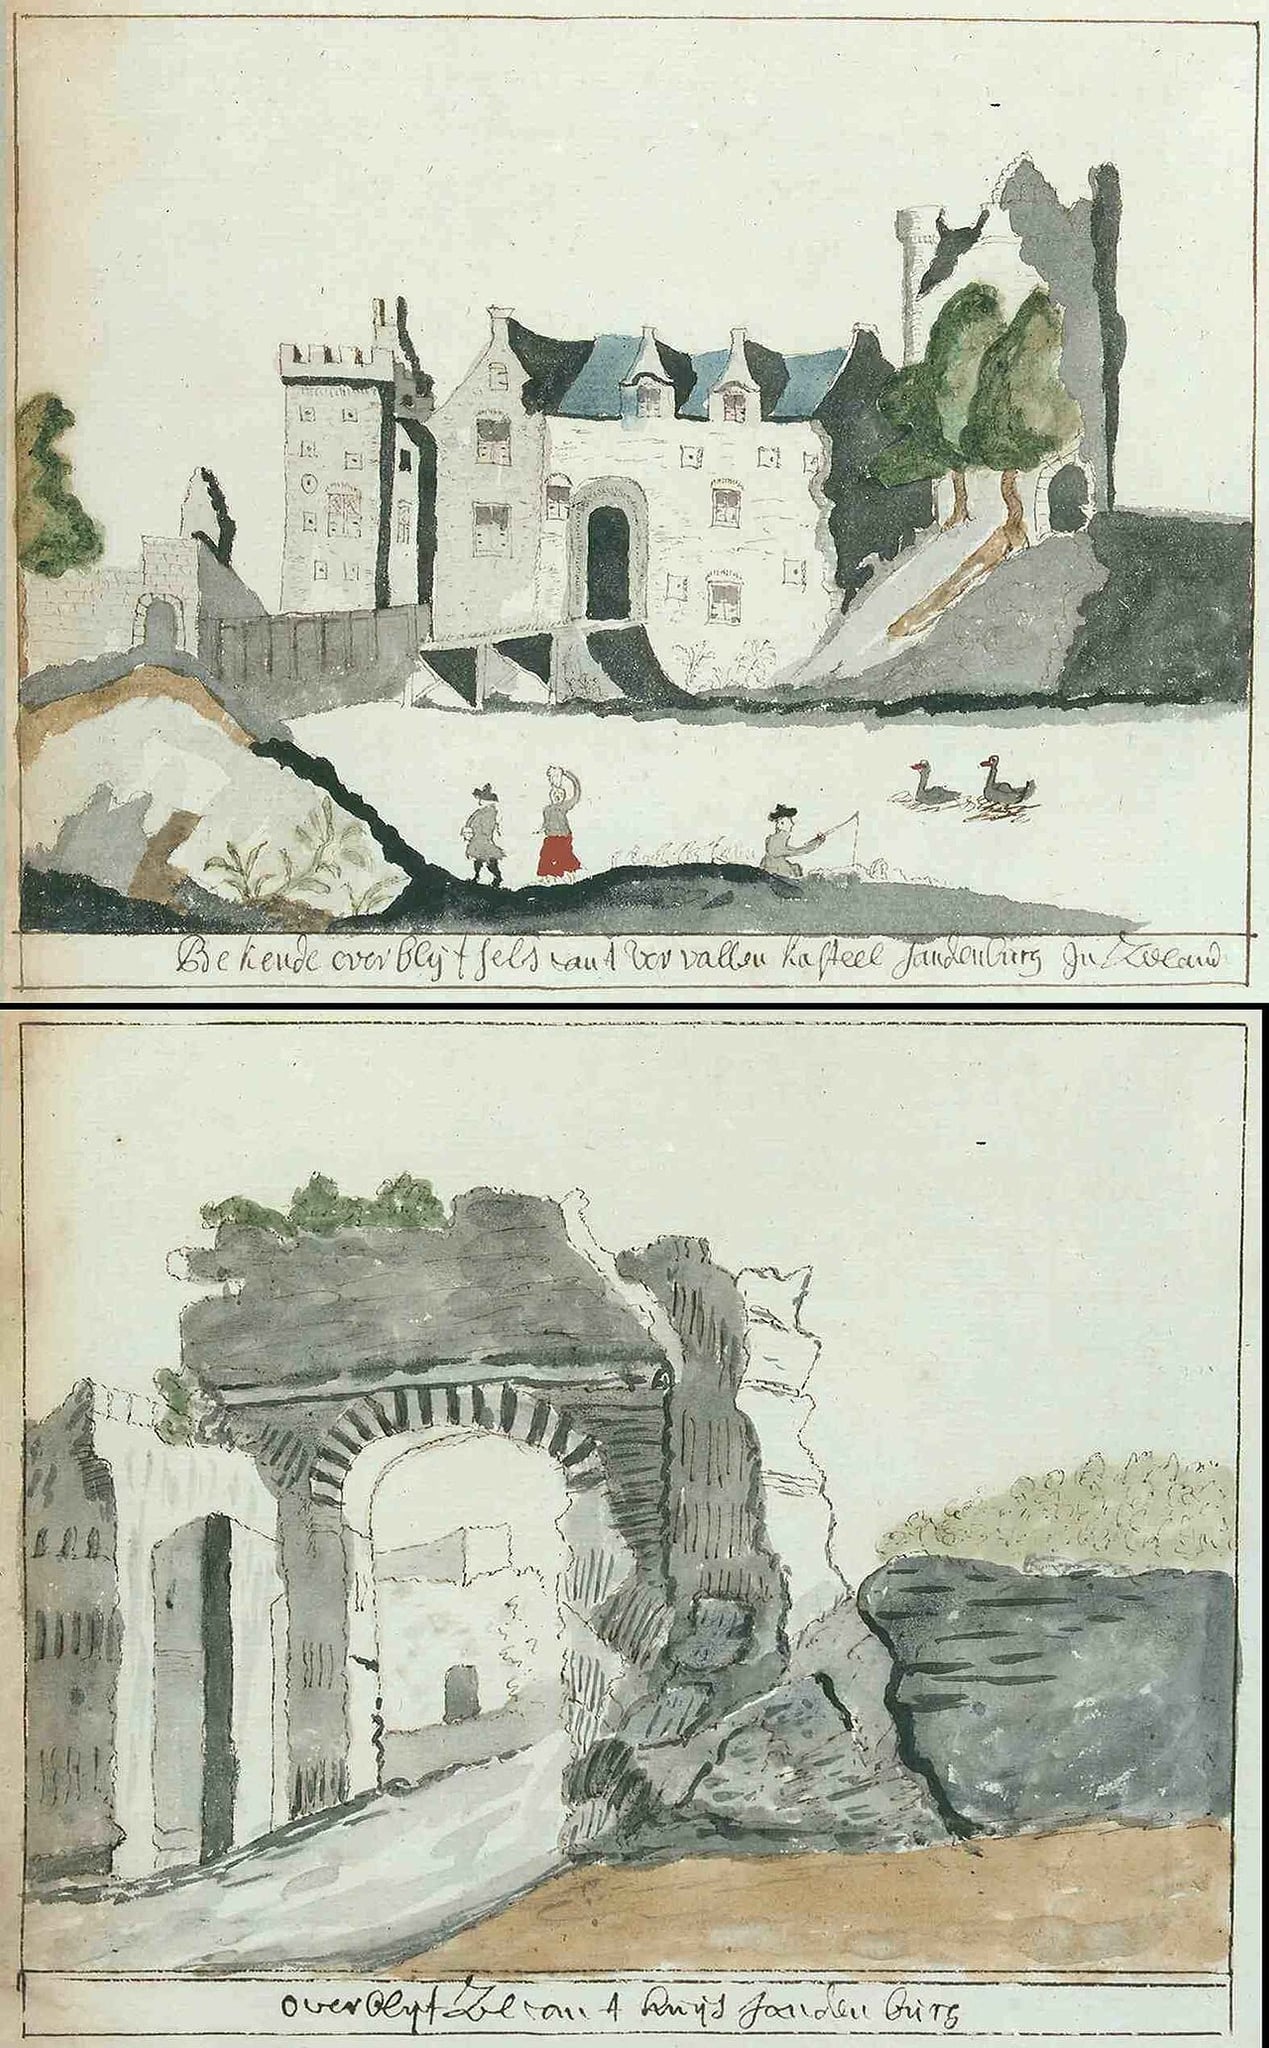 Bekende overblijtsels vant Vervallen Kasteel Sandenburg In Zeeland
overblyt Zel vant huijs Sandenburg